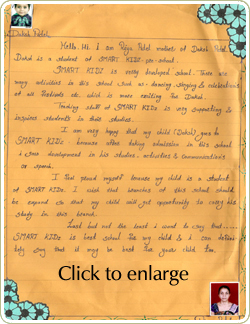 Daksh Patel.
Hello. Hi I am Priya Patel mother of Daksh Patel.
Daksh is a student of SMART KIDz pre-school.
SMART KIDz is very developed school. There are
many activities in this school such as dancing, singing & celebrations
of all festivals etc. which is more exciting for Daksh.
Teaching staff of SMART KIDz is very supporting &
inspires students in their studies.
I am very happy that my child (Daksh) goes to
SMART KIDz because after taking admission in this school
I saw development in his studies, activities & communications
in speech.
I feel proud myself because my child is a student
of SMART KIDz. I wish that branches of this school should
be expand so that my child will get opportunity to carry his
study in this branch.
Last but not the least I want to say that.....
SMART KIDz is best school for my child & I can definitely
say that it may be best for your child too.
Click to enlarge